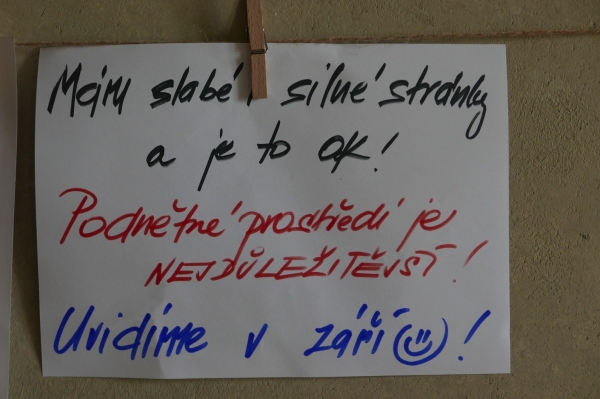 Mám slabé i silné stránky
a je to OK!
Podnětné prostředí je
NEJDŮLEŽITĚJŠÍ!
Uvidíme v září☺!